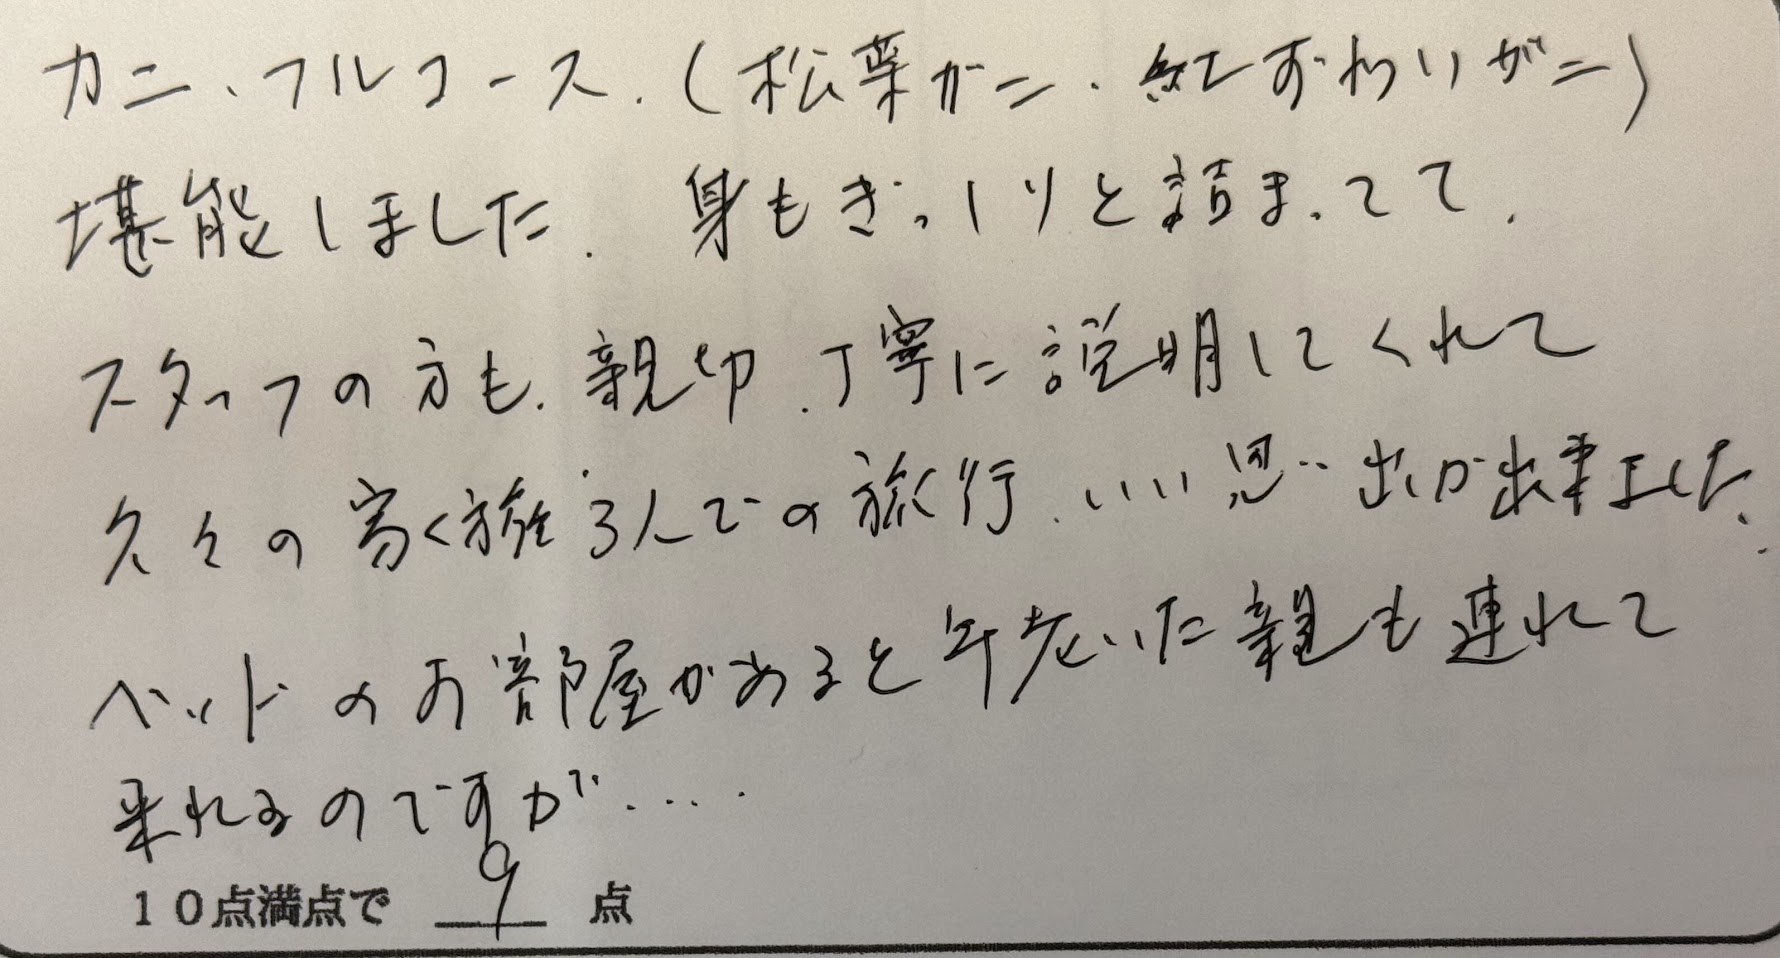 カニ、フルコース.(松葉ガニ.紅ずわいガニ)
堪能しました.身もぎっしりと詰まってて.
スタッフの方も.親切.丁寧に説明してくれて
久々の家族3人での旅行.いい思い出が出来ました.
ベットのお部屋があると年老いた親も連れて
来れるのですが.....
10点満点で 9 点